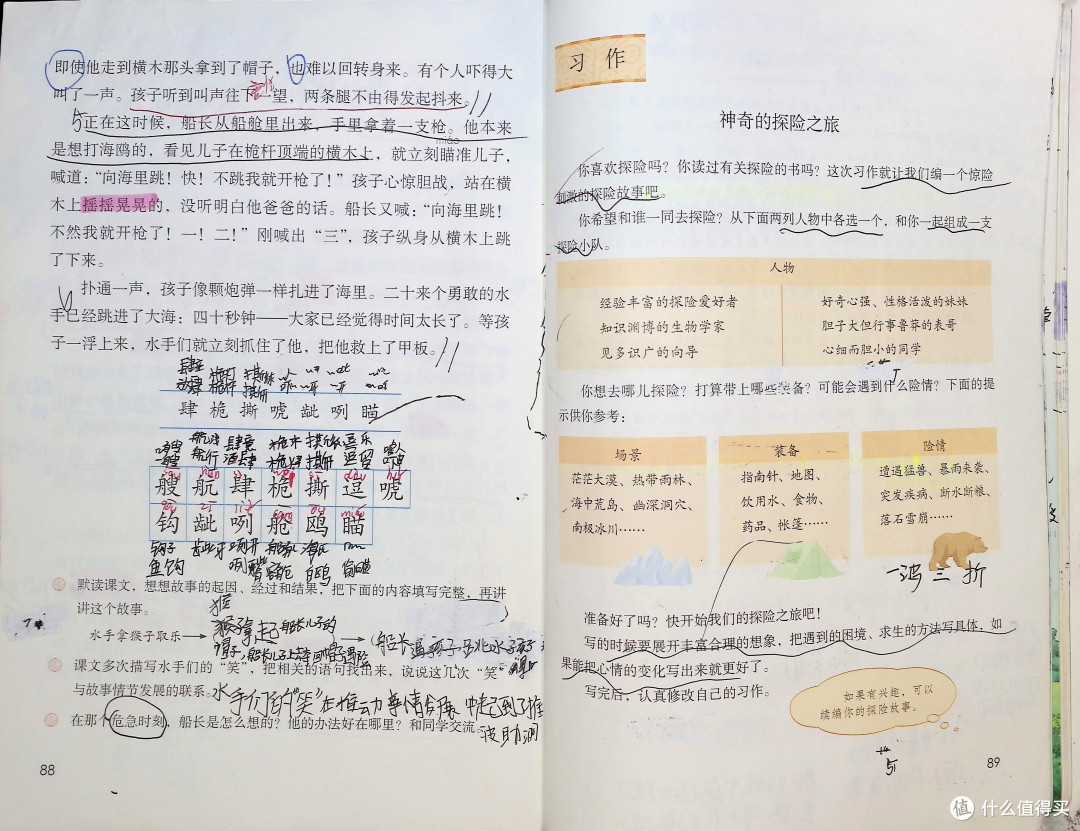 即使他走到横木那头拿到了帽子，也难以回转身来。有个人吓得大
叫了一声。孩子听到叫声往下一望，两条腿不由得发起抖来。
正在这时候，船长从船舱里出来，手里拿着一支枪。他本来
miáo
是想打海鸥的，看见儿子在桅杆顶端的横木上，就立刻瞄准儿子，
喊道：“向海里跳！快！不跳我就开枪了！”孩子心惊胆战，站在横
木上摇摇晃晃的，没听明白他爸爸的话。船长又喊：“向海里跳！
不然我就开枪了！一！二！”刚喊出“三”，孩子纵身从横木上跳
了下来。
扑通一声，孩子像颗炮弹一样扎进了海里。二十来个勇敢的水
手已经跳进了大海：四十秒钟——大家已经觉得时间太长了。等孩
子一浮上来，水手们就立刻抓住了他，把他救上了甲板。
肆 桅 撕 唬 龇 咧 瞄
艘 航 肆 桅 撕 逗 唬
钩 龇 咧 舱 鸥 瞄
钩子 龇牙 咧开
鱼钩
默读课文，想想故事的起因、经过和结果，把下面的内容填写完整，再讲
讲这个故事。
猴
水手拿猴子取乐→猴子拿起船长儿子的
课文多次描写水手们的“笑”，把相关的语句找出来，说说这几次“笑”
与故事情节发展的联系。水手们的“笑”在推动事情
在那个危急时刻，船长是怎么想的？他的办法好在哪里？和同学交流。
88
习作
神奇的探险之旅
你喜欢探险吗？你读过有关探险的书吗？这次习作就让我们编一个惊险
刺激的探险故事吧。
你希望和谁一同去探险？从下面两列人物中各选一个，和你一起组成一支
探险小队。
人物
经验丰富的探险爱好者 好奇心强、性格活泼的妹妹
知识渊博的生物学家 胆子大但行事鲁莽的表哥
见多识广的向导 心细而胆小的同学
你想去哪儿探险？打算带上哪些装备？可能会遇到什么险情？下面的提
示供你参考：
场景
茫茫大漠、热带雨林、
海中荒岛、幽深洞穴、
南极冰川……
装备
指南针、地图、
饮用水、食物、
药品、帐篷……
险情
遭遇猛兽、暴雨来袭、
突发疾病、断水断粮、
落石雪崩……
一波三折
准备好了吗？快开始我们的探险之旅吧！
写的时候要展开丰富合理的想象，把遇到的困境、求生的方法写具体，如
果能把心情的变化写出来就更好了。
写完后，认真修改自己的习作。
如果有兴趣，可以
续编你的探险故事。
89
值 什么值得买